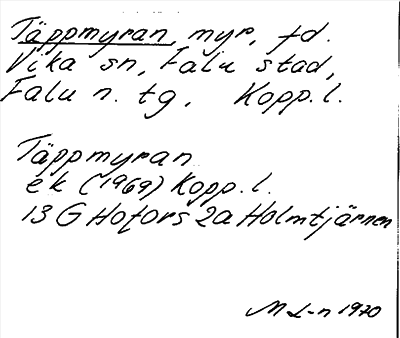 Täppmyran, myr, fd.
Vika sn, Falu stad,
Falu n. tg, Kopp. l.
Täppmyran
ek (1969) Kopp. l.
13 G Hofors 2a Holmtjärnen
M L-n 1970